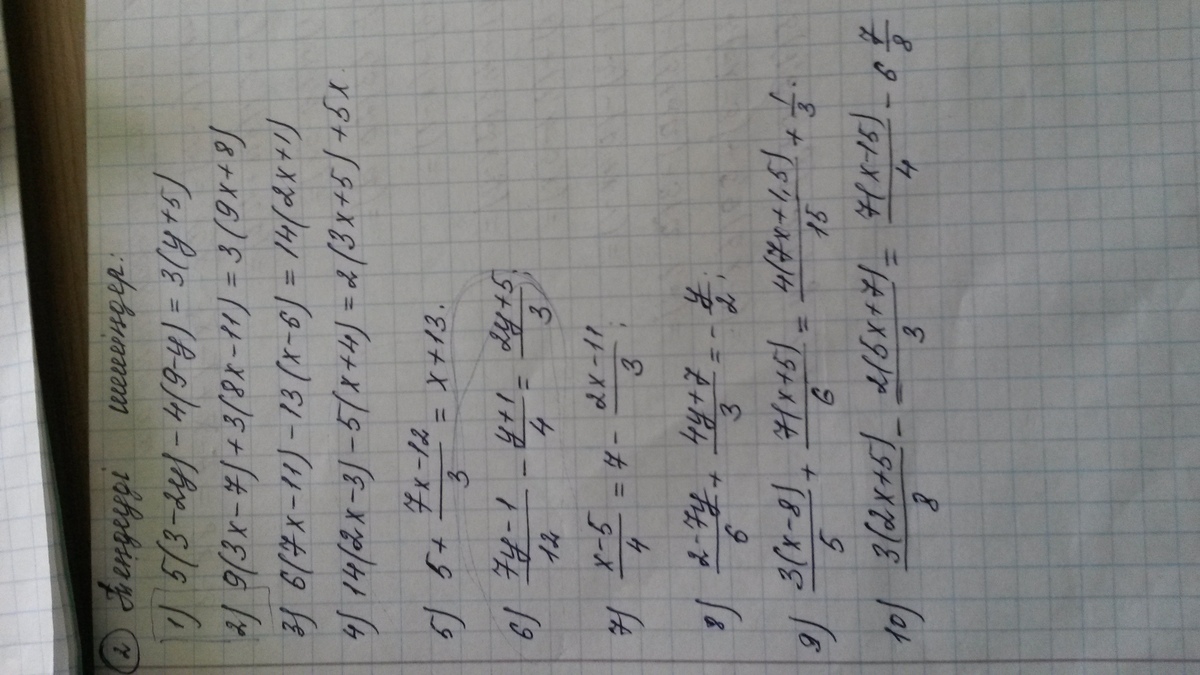 ② Теңдеуді шешіңдер:
1) 5(3-2y)-4(9-y)=3(y+5)
2) 9(3x-7)+3(8x-11)=3(9x+8)
3) 6(7x-11)-13(x-6)=14(2x+1)
4) 14(2x-3)-5(x+4)=2(3x+5)+5x.
5) 5+\frac{7x-12}{3}=x+13.
6) \frac{7y-1}{12}-\frac{y+1}{4}=\frac{2y+5}{3};
7) \frac{x-5}{4}=7-\frac{2x-11}{3};
8) \frac{2-7y}{6}+\frac{4y+7}{3}=-\frac{y}{2};
9) \frac{3(x-8)}{5}+\frac{7(x+5)}{6}=\frac{4(7x+1,5)}{15}+\frac{1}{3}.
10) \frac{3(2x+5)}{8}-\frac{2(5x+7)}{3}=\frac{7(x-15)}{4}-6\frac{7}{8}